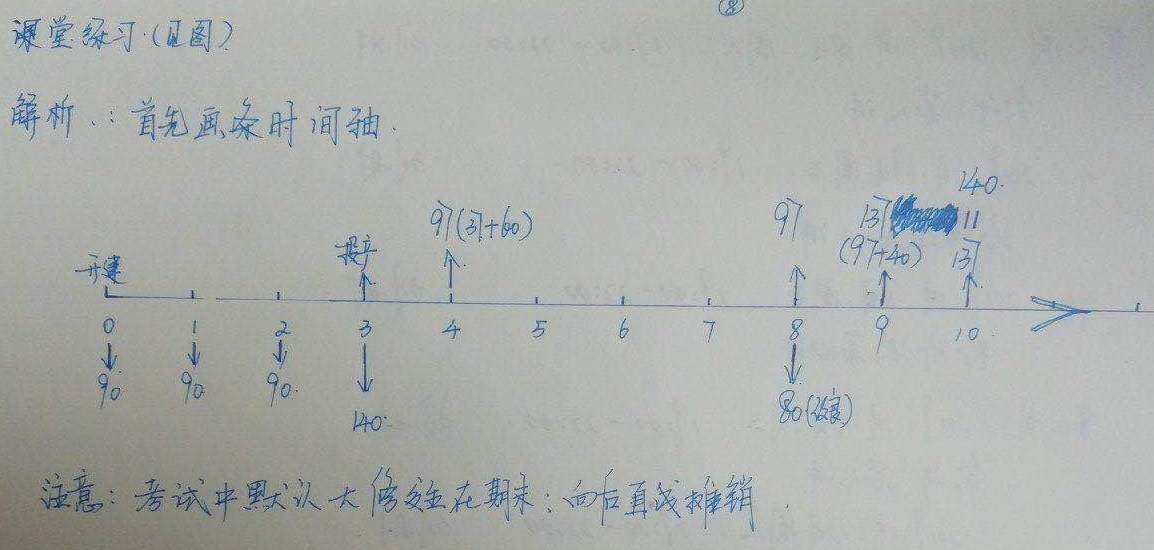 ⑧
课堂练习.(见图)
解析.:首先画条时间轴.
140.
97(37+60) 97 137 11
开建 投产 (97+40) 137
0 1 2 3 4 5 6 7 8 9 10.
90 90 90. 140. 80(改良)
注意:考试中默认大修发生在期末;向后直线摊销.